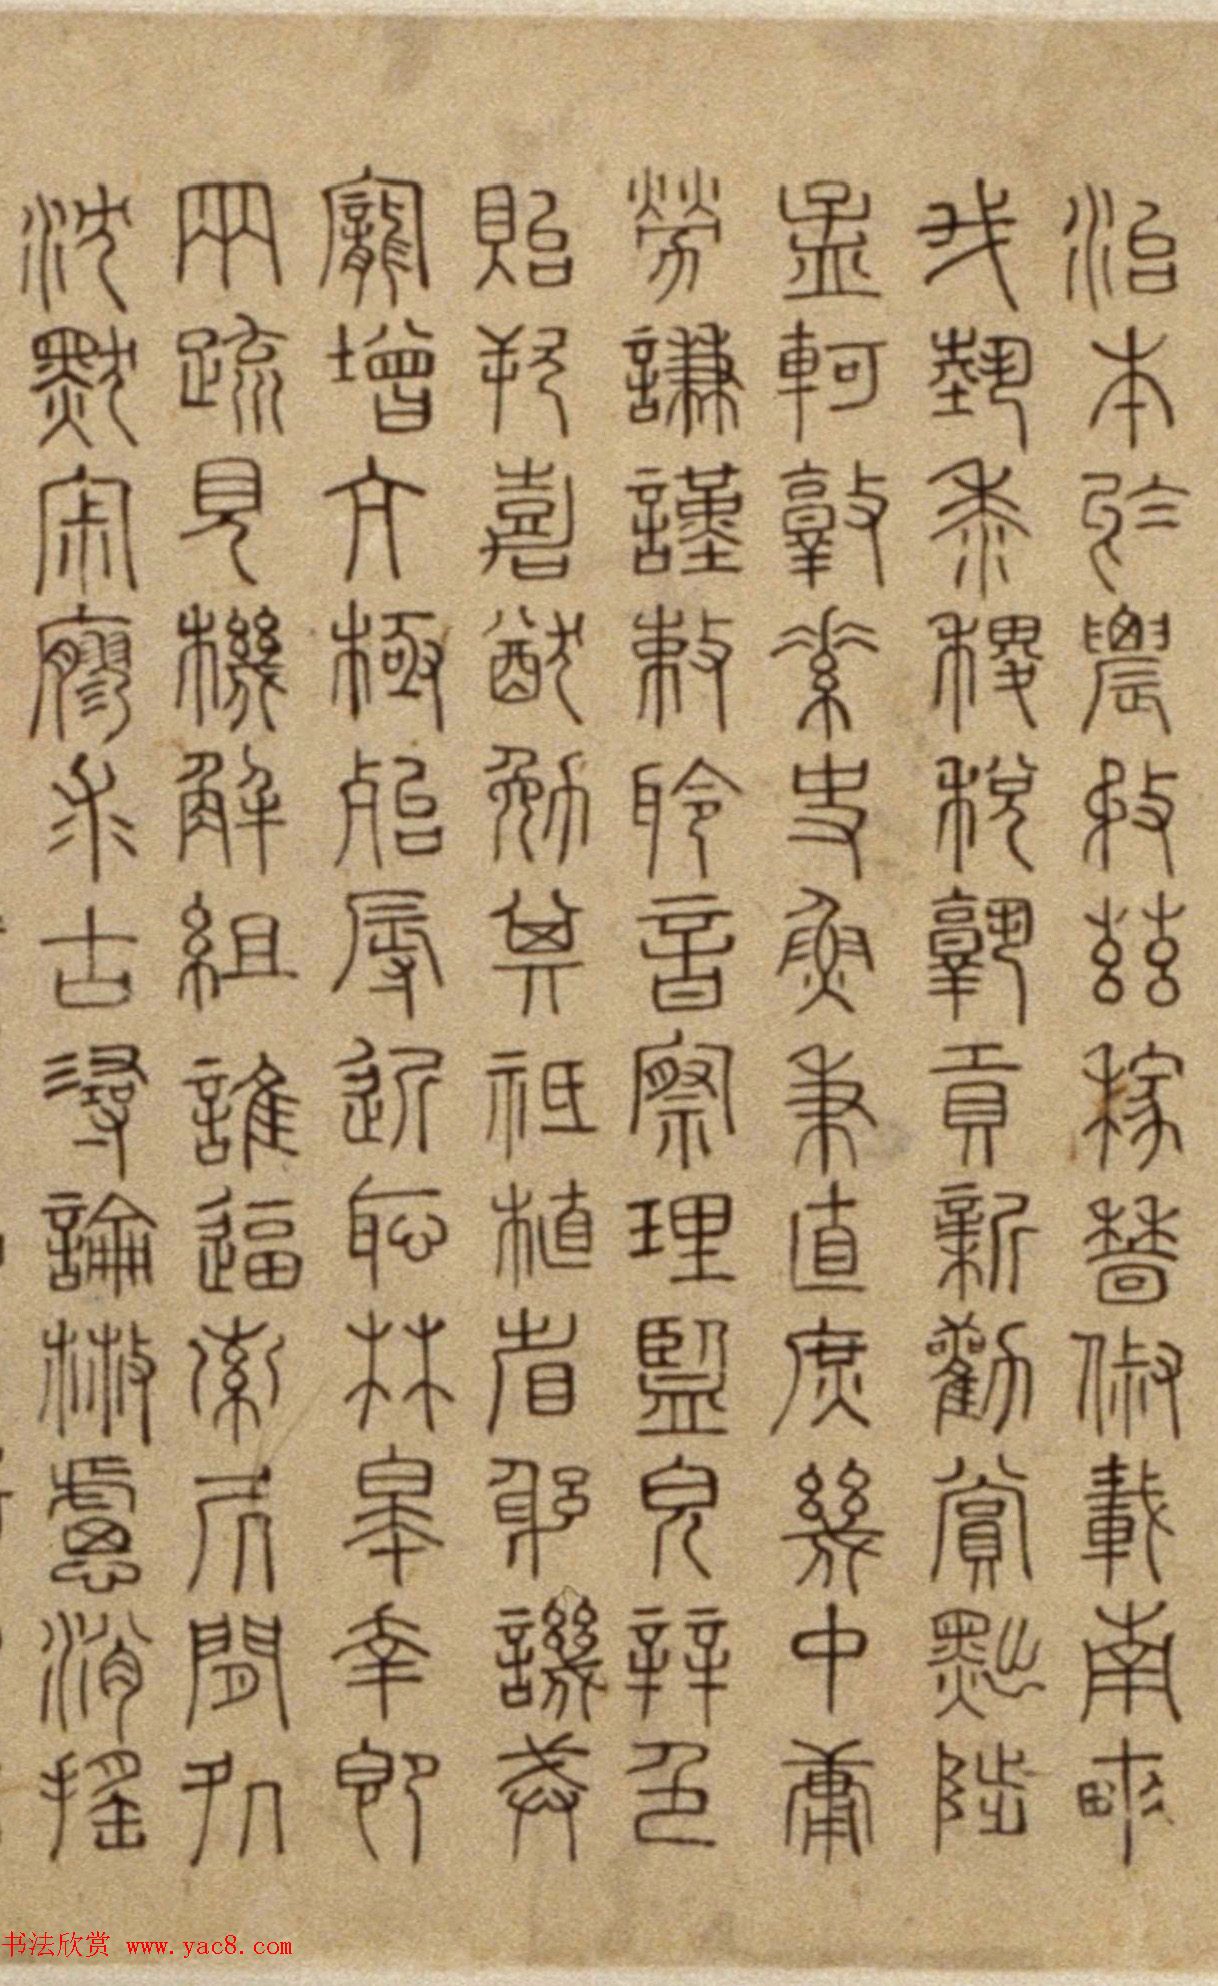 治本於農務茲稼穡俶載南畝
我藝黍稷稅孰貢新勸賞黜陟
孟軻敦素史魚秉直庶幾中庸
勞謙謹敕聆音察理監皃辯色
貽厥嘉猷勉其祗植省躬譏誡
寵增亢極殆辱近恥林皋幸即
兩疏見機解組誰逼索居閒處
沈默寂寥求古尋論散慮逍遙
书法欣赏 www.yac8.com